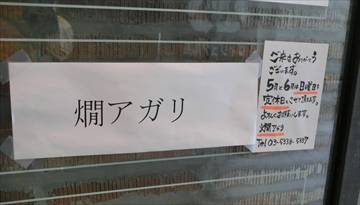 燗アガリ
ご来店ありがとう
ございます。
5月と6月は日曜日を
定休日とさせて頂きます。
よろしくお願いします。
燗アガリ